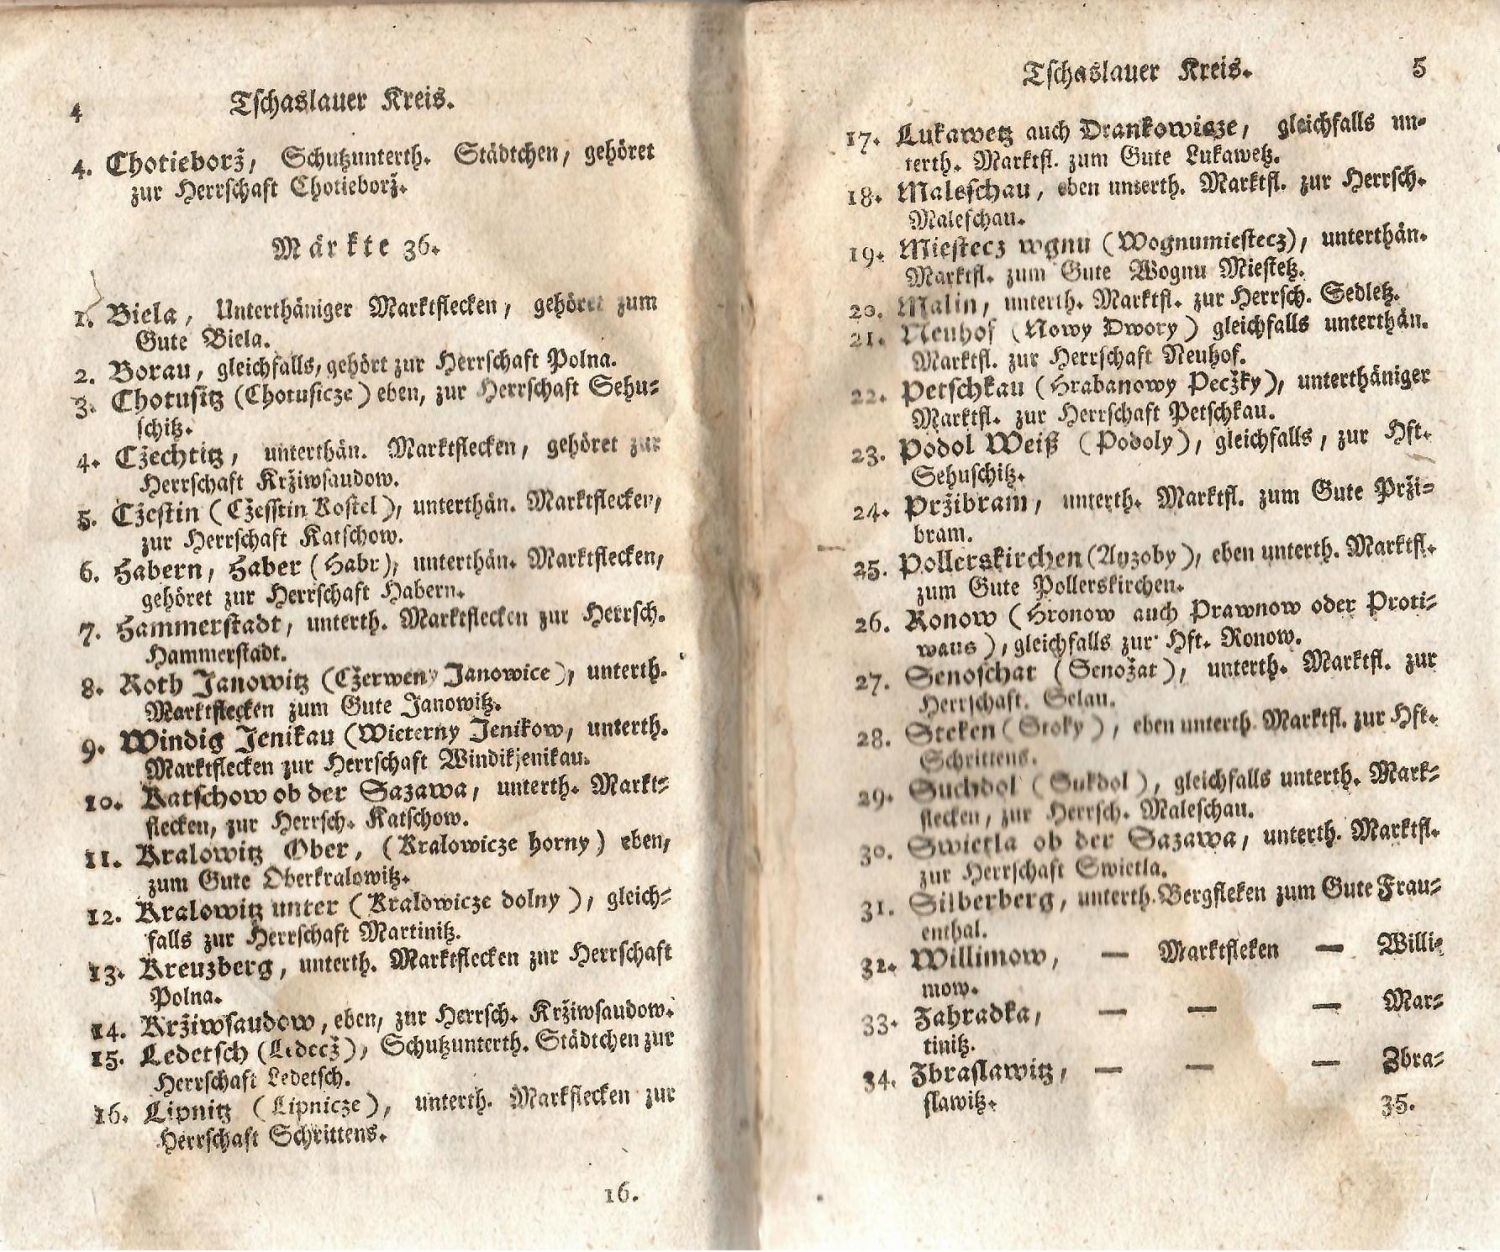 4
Tschaslauer Kreis.
4. Chotieborž, Schutzunterth. Städtchen, gehöret
zur Herrschaft Chotieborž.
Märkte 36.
1. Biela, Unterthäniger Marktflecken, gehöret zum
Gute Biela.
2. Borau, gleichfalls, gehört zur Herrschaft Polna.
3. Chotusitz (Chotusicze) eben, zur Herrschaft Sehu-
schitz.
4. Cžechtitz, unterthän. Marktflecken, gehöret zur
Herrschaft Kržiwsaudow.
5. Cžestin (Cžesstin Kostel), unterthän. Marktflecken,
zur Herrschaft Katschow.
6. Habern, Haber (Habr), unterthän. Marktflecken,
gehöret zur Herrschaft Habern.
7. Hammerstadt, unterth. Marktflecken zur Herrsch.
Hammerstadt.
8. Roth Janowitz (Cžerweny Janowice), unterth.
Marktflecken zum Gute Janowitz.
9. Windig Jenikau (Wieterny Jenikow, unterth.
Marktflecken zur Herrschaft Windikjenikau.
10. Katschow ob der Sazawa, unterth. Markt-
flecken, zur Herrsch. Katschow.
11. Kralowitz Ober, (Kralowicze horny) eben,
zum Gute Oberkralowitz.
12. Kralowitz unter (Kralowicze dolny), gleich-
falls zur Herrschaft Martinitz.
13. Kreuzberg, unterth. Marktflecken zur Herrschaft
Polna.
14. Kržiwsaudow, eben, zur Herrsch. Kržiwsaudow.
15. Ledetsch (Ledecž), Schutzunterth. Städtchen zur
Herrschaft Ledetsch.
16. Lipnitz (Lipnicze), unterth. Markflecken zur
Herrschaft Schrittens.
16.
Tschaslauer Kreis.
5
17. Lukawetz auch Drankowicze, gleichfalls un-
terth. Marktfl. zum Gute Lukawetz.
18. Maleschau, eben unterth. Marktfl. zur Herrsch.
Maleschau.
19. Miestecz wgnu (Wognumiestecz), unterthän.
Marktfl. zum Gute Wognu Miestetz.
20. Malin, unterth. Marktfl. zur Herrsch. Sedletz.
21. Neuhof (Nowy Dwory) gleichfalls unterthän.
Marktfl. zur Herrschaft Neuhof.
22. Petschkau (Hrabanowy Pecžky), unterthäniger
Marktfl. zur Herrschaft Petschkau.
23. Podol Weiß (Podoly), gleichfalls, zur Hft.
Sehuschitz.
24. Pržibram, unterth. Marktfl. zum Gute Prži-
bram.
25. Pollerskirchen (Auzoby), eben unterth. Marktfl.
zum Gute Pollerskirchen.
26. Ronow (Hronow auch Prawnow oder Proti-
waus), gleichfalls zur Hft. Ronow.
27. Senoschat (Senožat), unterth. Marktfl. zur
Herrschaft. Selau.
28. Steken (Stoky), eben unterth. Marktfl. zur Hft.
Schrittens.
29. Suchdol (Sukdol), gleichfalls unterth. Mark-
flecken, zur Herrsch. Maleschau.
30. Swietla ob der Sazawa, unterth. Marktfl.
zur Herrschaft Swietla.
31. Silberberg, unterth. Bergfleken zum Gute Frau-
enthal.
32. Willimow, — Marktfleken — Willi-
mow.
33. Zahradka, — — — Mar-
tinitz.
34. Zbraslawitz, — — — Zbra-
slawitz.
35.